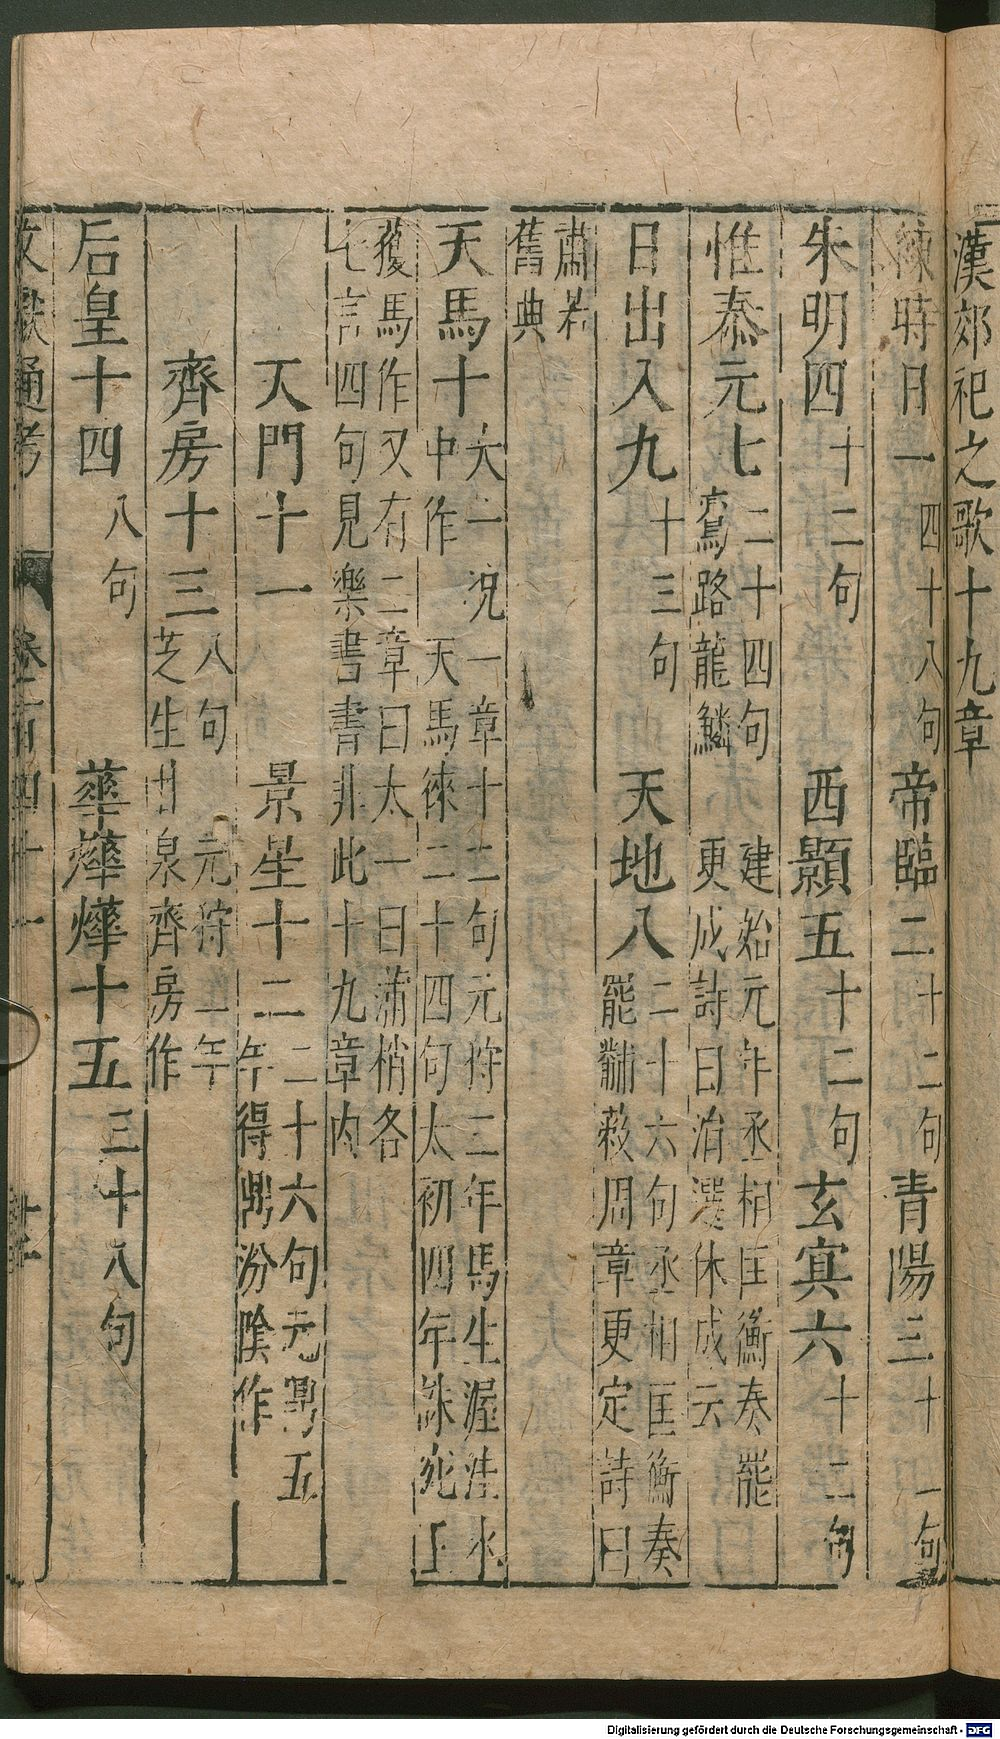 漢郊祀之歌十九章
練時日一四十八句 帝臨二十二句 青陽三十二句
朱明四十二句 西顥五十二句 玄冥六十二句
惟泰元七二十四句 建始元年丞相匡衡奏罷
鸞路龍鱗 更成詩曰涓選休成云
日出入九十三句 天地八二十六句丞相匡衡奏
罷黼黻周章更定詩曰
肅若
舊典
天馬十太一況一章十二句元狩三年馬生渥洼水
中作 天馬徠二十四句太初四年誅宛王
獲馬作又有二章曰太一曰蒲梢各
七言四句見樂書書非此十九章內
天門十一 景星十二二十六句元鼎五
年得鼎汾陰作
齊房十三八句 元狩二年
芝生甘泉齊房作
后皇十四八句 華燁燁十五三十八句
文獻通考 卷一百四十一
Digitalisierung gefördert durch die Deutsche Forschungsgemeinschaft - DFG